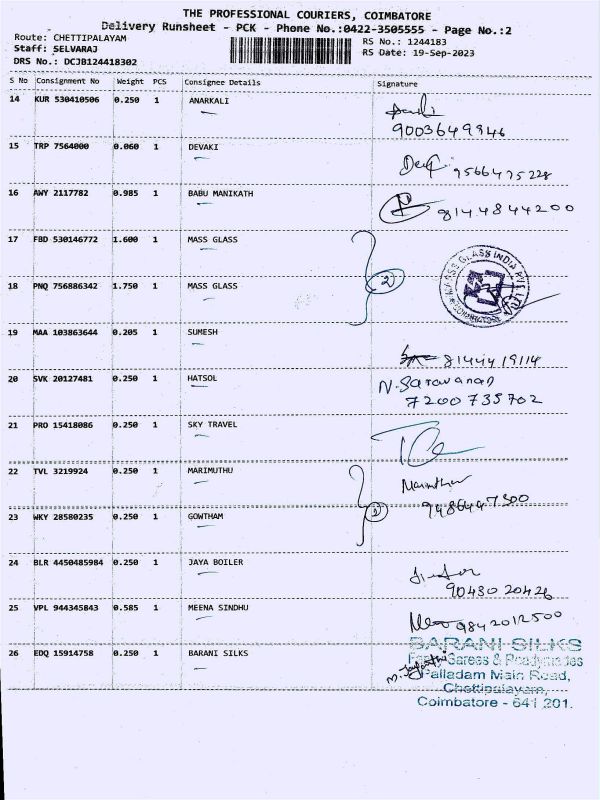 THE PROFESSIONAL COURIERS, COIMBATORE
Delivery Runsheet - PCK - Phone No.:0422-3505555 - Page No.:2
Route: CHETTIPALAYAM
Staff: SELVARAJ
DRS No.: DCJB124418302
RS No.: 1244183
RS Date: 19-Sep-2023
S No Consignment No Weight PCS Consignee Details Signature
14 KUR 530410506 0.250 1 ANARKALI
9003649946
15 TRP 7564000 0.060 1 DEVAKI
9566475228
16 AWY 2117782 0.985 1 BABU MANIKATH
8144844200
17 FBD 530146772 1.600 1 MASS GLASS
2
18 PNQ 756886342 1.750 1 MASS GLASS
19 MAA 103863644 0.205 1 SUMESH
8144419114
20 SVK 20127481 0.250 1 HATSOL
N. Saravanan
7200735702
21 PRO 15418086 0.250 1 SKY TRAVEL
22 TVL 3219924 0.250 1 MARIMUTHU
Marimuthu
9486447300
23 WKY 28580235 0.250 1 GOWTHAM
24 BLR 4450485984 0.250 1 JAYA BOILER
90430 20426
25 VPL 944345843 0.585 1 MEENA SINDHU
9842012500
26 EDQ 15914758 0.250 1 BARANI SILKS
BARANI SILKS
Sarees & Readymades
Palladam Main Road,
Chettipalayam,
Coimbatore - 641 201.